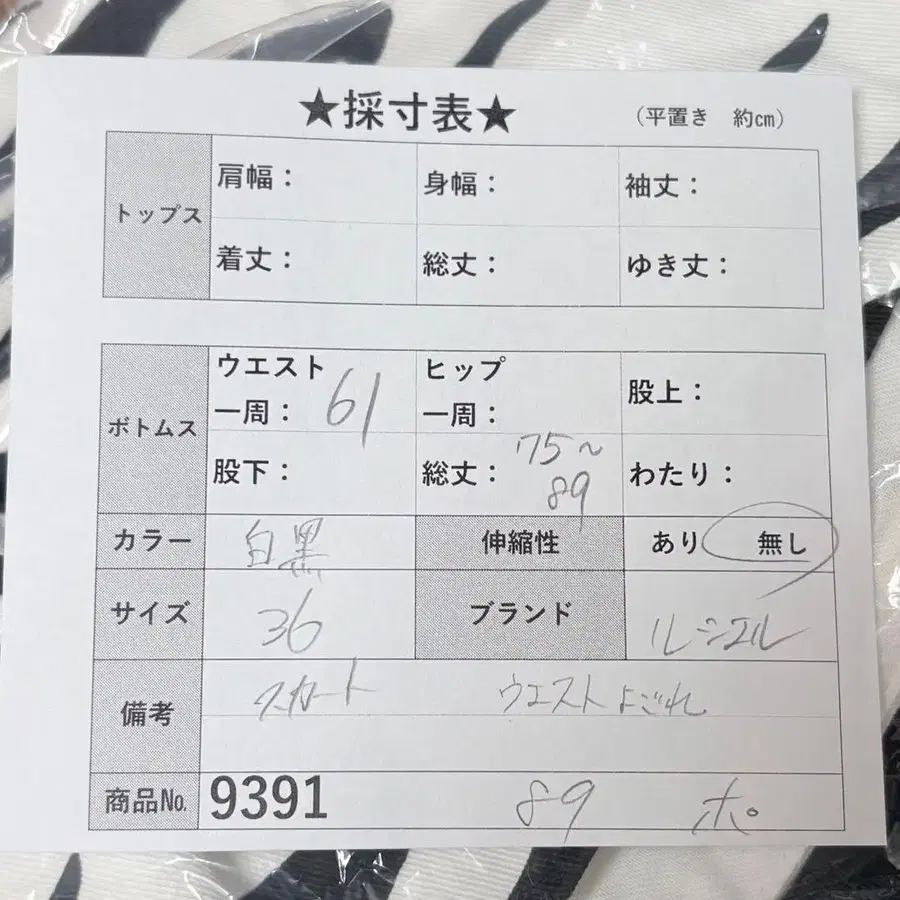 ★採寸表★ （平置き 約㎝）
トップス
肩幅： 身幅： 袖丈：
着丈： 総丈： ゆき丈：
ボトムス
ウエスト一周： 61 ヒップ一周： 股上：
股下： 総丈： 75〜89 わたり：
カラー 白黒 伸縮性 あり 無し
サイズ 36 ブランド ルシエル
備考 スカート ウエストよごれ
商品№ 9391 89 ポ